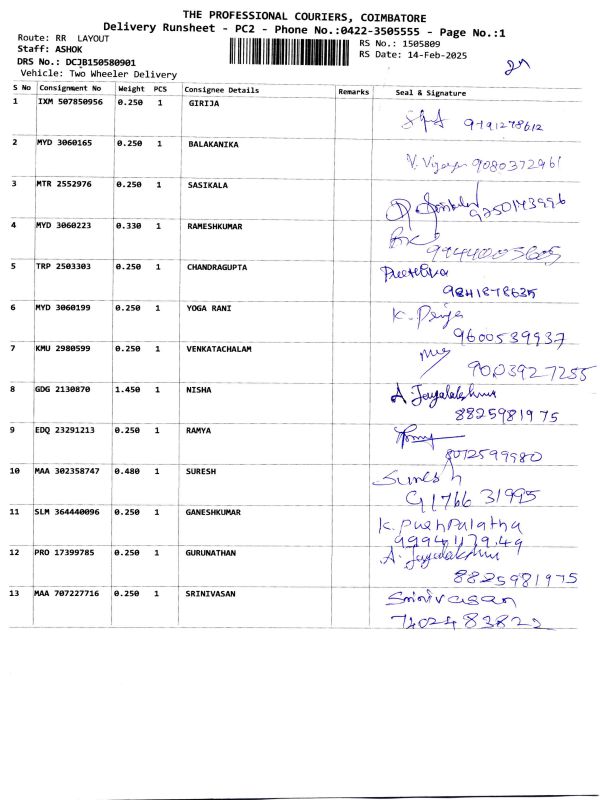 THE PROFESSIONAL COURIERS, COIMBATORE
Delivery Runsheet - PC2 - Phone No.:0422-3505555 - Page No.:1
Route: RR LAYOUT
RS No.: 1505809
Staff: ASHOK
RS Date: 14-Feb-2025
DRS No.: DCJB150580901
Vehicle: Two Wheeler Delivery
S No Consignment No Weight PCS Consignee Details Remarks Seal & Signature
1 IXM 507850956 0.250 1 GIRIJA
9191278612
2 MYD 3060165 0.250 1 BALAKANIKA
9080372961
3 MTR 2552976 0.250 1 SASIKALA
9250143996
4 MYD 3060223 0.330 1 RAMESHKUMAR
5 TRP 2503303 0.250 1 CHANDRAGUPTA
9841878635
6 MYD 3060199 0.250 1 YOGA RANI
K. Priya
9600539937
7 KMU 2980599 0.250 1 VENKATACHALAM
9003927255
8 GDG 2130870 1.450 1 NISHA
A. Jayalakshmi
8825981975
9 EDQ 23291213 0.250 1 RAMYA
8072599980
10 MAA 302358747 0.480 1 SURESH
Suresh
9176631995
11 SLM 364440096 0.250 1 GANESHKUMAR
K. Pushpalatha
12 PRO 17399785 0.250 1 GURUNATHAN
A. Jayalakshmi
8825981975
13 MAA 707227716 0.250 1 SRINIVASAN
Srinivasan